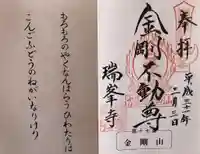 奉拝
平成三十一年
二月三日
金剛不動尊
瑞峯寺
金剛山
もろもろのやくとなんはらうひわたりは
こんごふどうのねがいなりけり